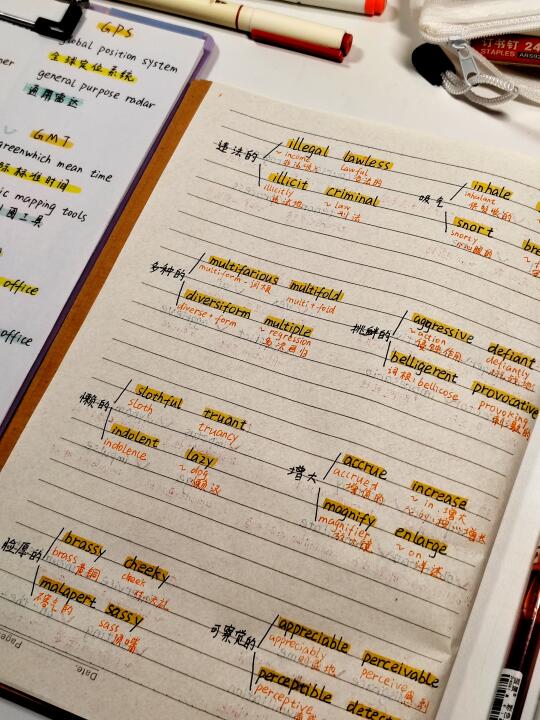 GPS
global position system
全球定位系统
general purpose radar
通用雷达
GMT
greenwhich mean time
标准时间
mapping tools
工具
office
office
订书钉 24
STAPLES
违法的
illegal lawless
~ income lawful
非法收入 合法的
illicit criminal
illicitly ~ law
违法地 刑法
吸气
inhale
inhalant
供吸收的
snort
snorty
多种的
multifarious multifold
multiform - 词根 multi+fold
diversiform multiple
diverse+form ~ regression
多次回归
挑衅的
aggressive defiant
~ action defiantly
侵蚀作用 挑战地
belligerent provocative
词根: bellicose provoking
刺激的
懒的
slothful truant
sloth truancy
indolent lazy
indolence ~ dog
懒汉
增大
accrue increase
accrued ~ in 增大
增值的
magnify enlarge
magnifier ~ on
放大镜 详述
脸厚的
brassy cheeky
brass cheek
黄铜
malapert sassy
sass
顶嘴
可察觉的
appreciable perceivable
appreciably perceive 感到
perceptible detect
perceptive
Date.
Page